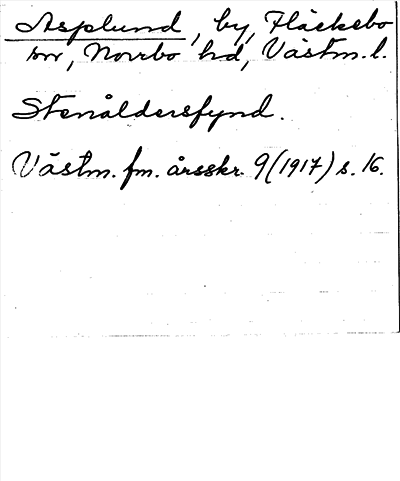 Asplund, by, Fläckebo
sn, Norrbo hd, Västm. l.
Stenåldersfynd.
Västm. fm. årsskr. 9 (1917) s. 16.